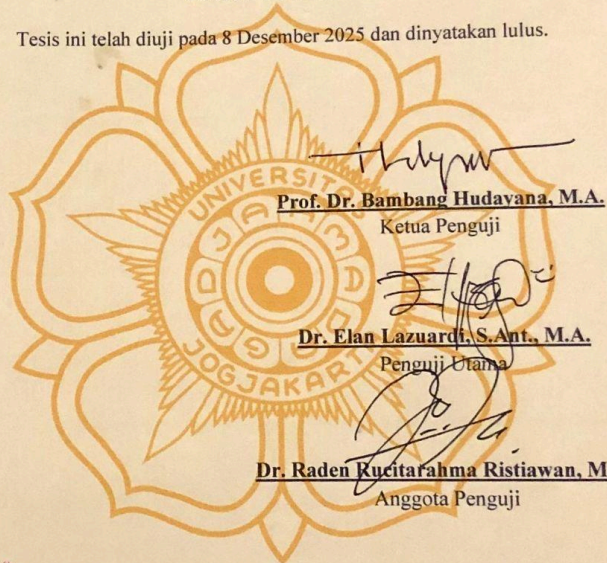 Tesis ini telah diuji pada 8 Desember 2025 dan dinyatakan lulus.
UNIVERSITAS
GADJAH MADA
JOGJAKARTA
Prof. Dr. Bambang Hudayana, M.A.
Ketua Penguji
Dr. Elan Lazuardi, S.Ant., M.A.
Penguji Utama
Dr. Raden Rucitarahma Ristiawan, M
Anggota Penguji